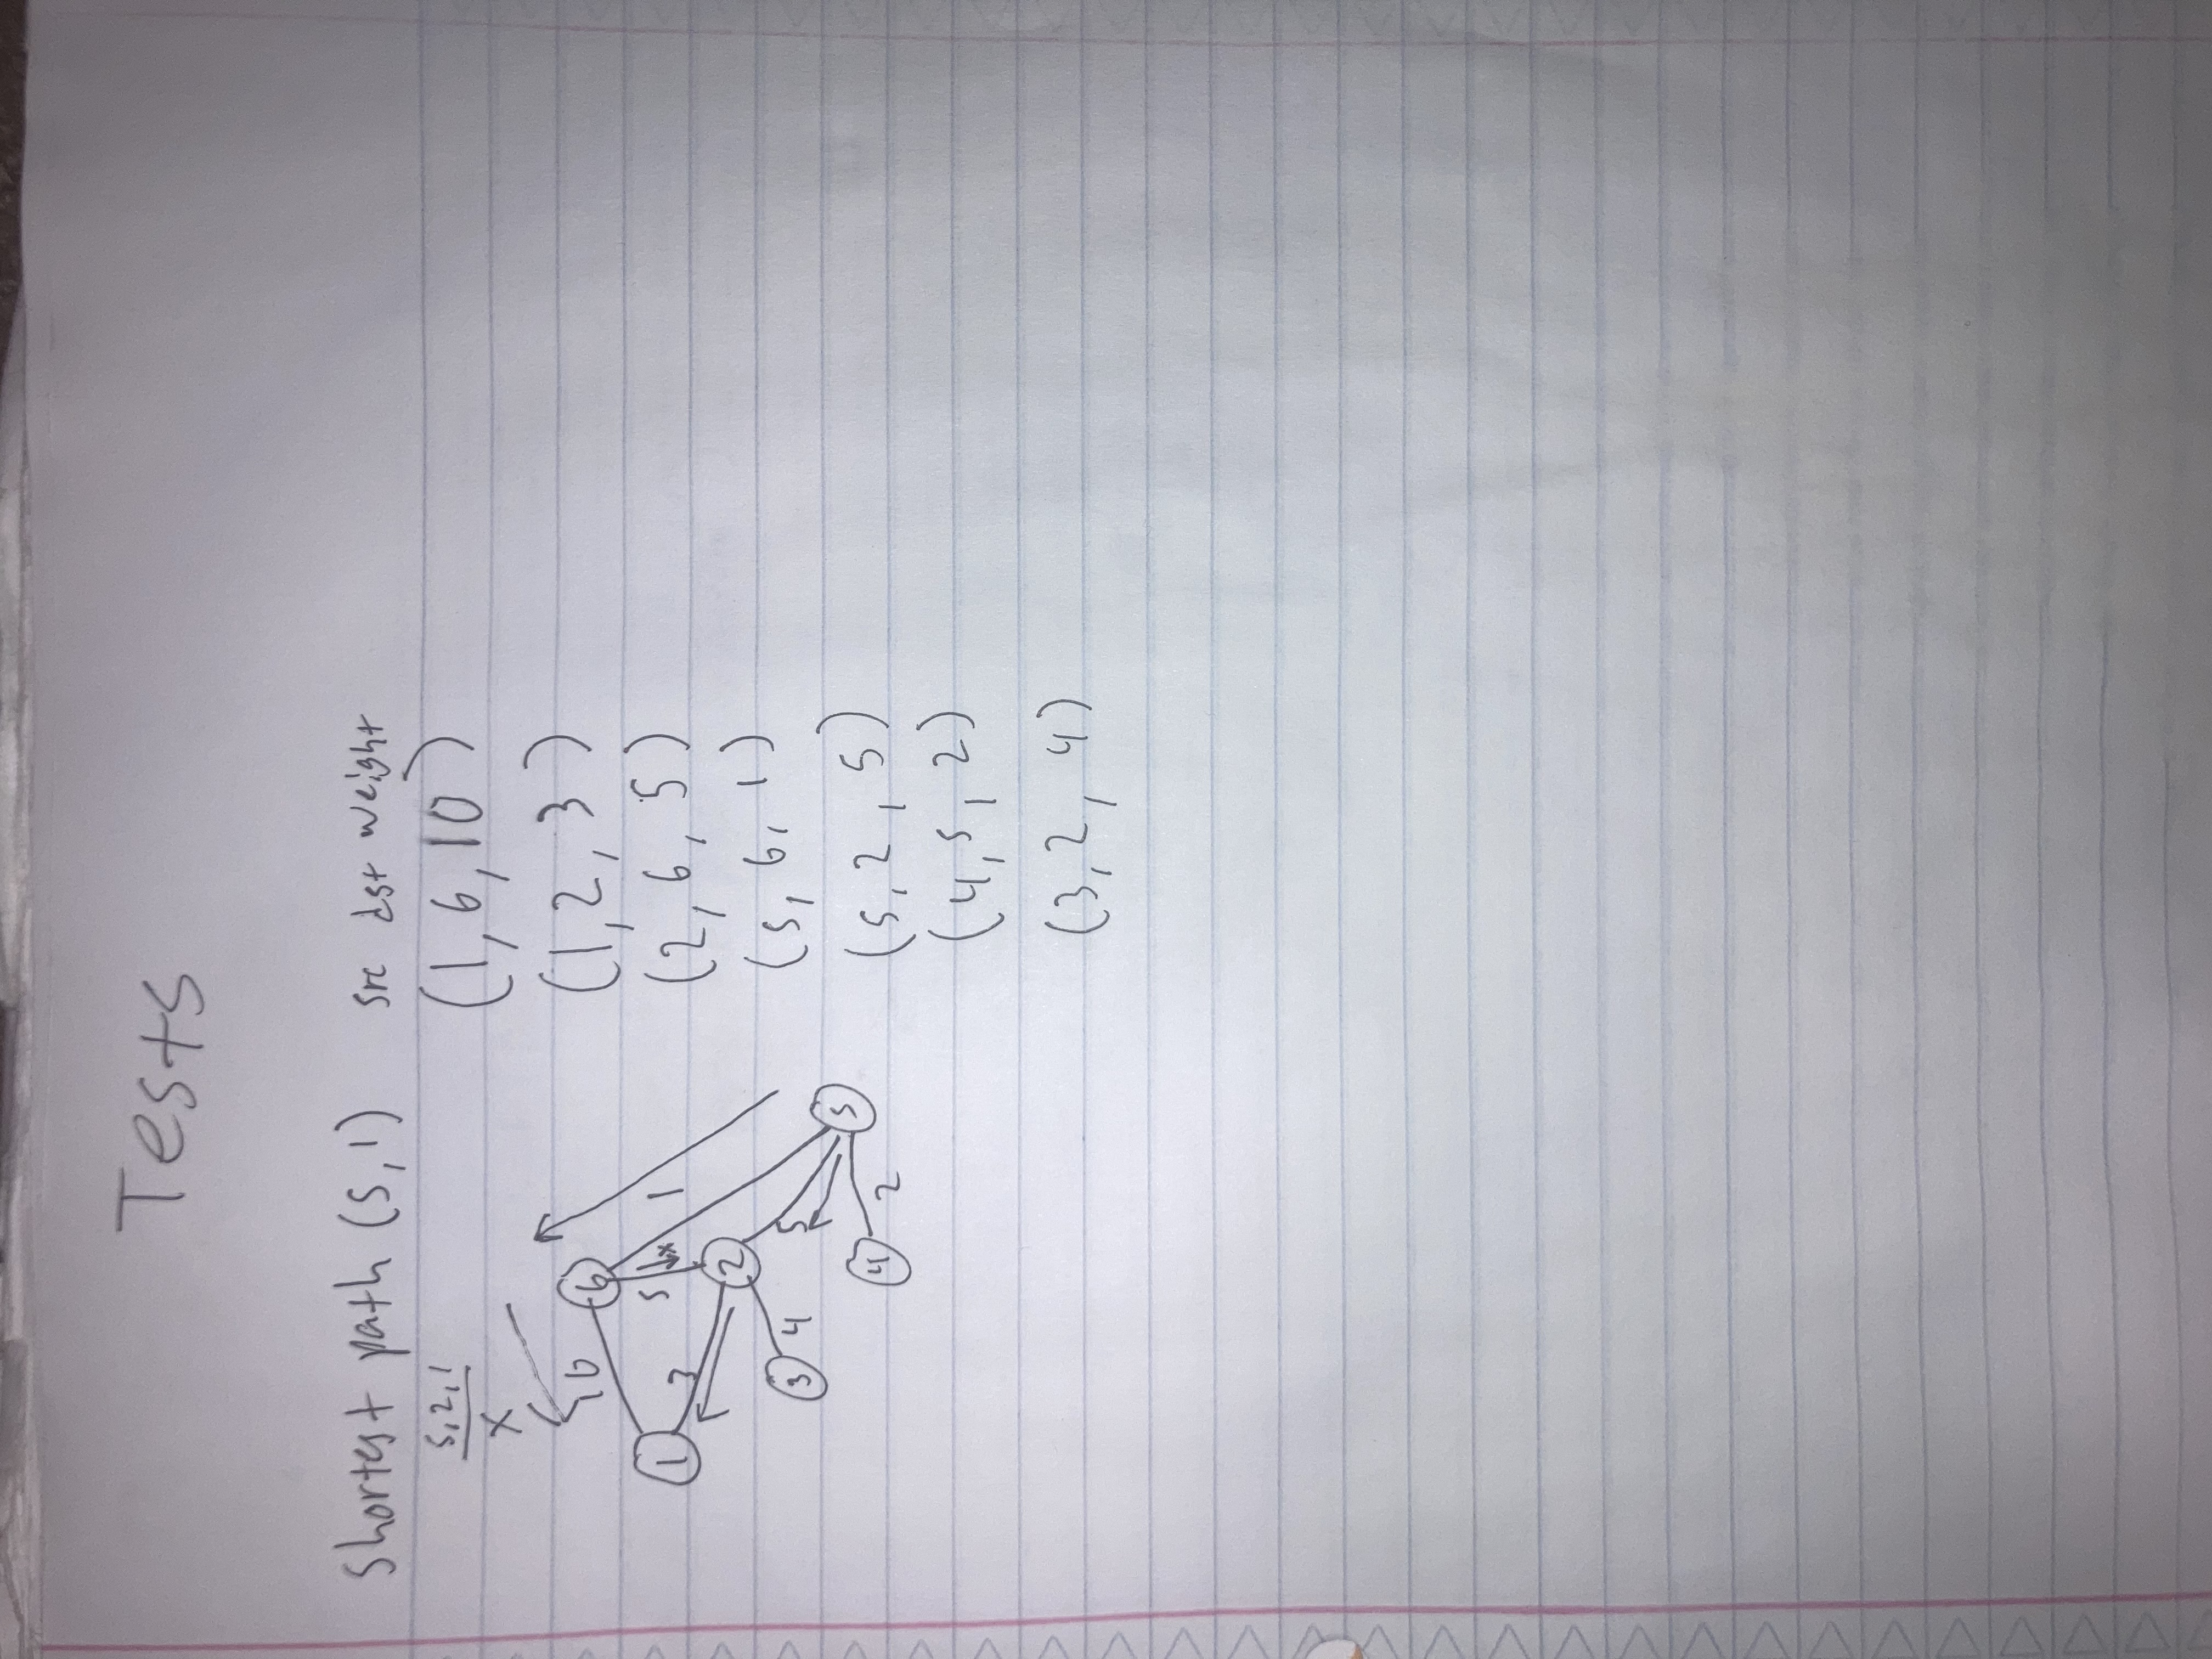 Tests
Shortest path (5,1)
5,2,1
x
10
6
1
5
x
1
3
2
3
4
5
5
4
2
src dst weight
(1, 6, 10)
(1, 2, 3)
(2, 6, 5)
(5, 6, 1)
(5, 2, 5)
(4, 5, 2)
(3, 2, 4)